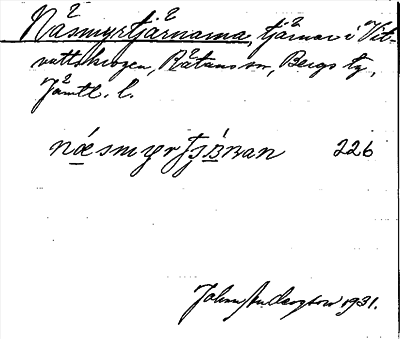 Näsmyrtjärnarna, tjärnar i Vit-
vattskrogen, Rätans sn, Bergs tg,
Jämtl. l.
næsmyrtjänan 226
1931.